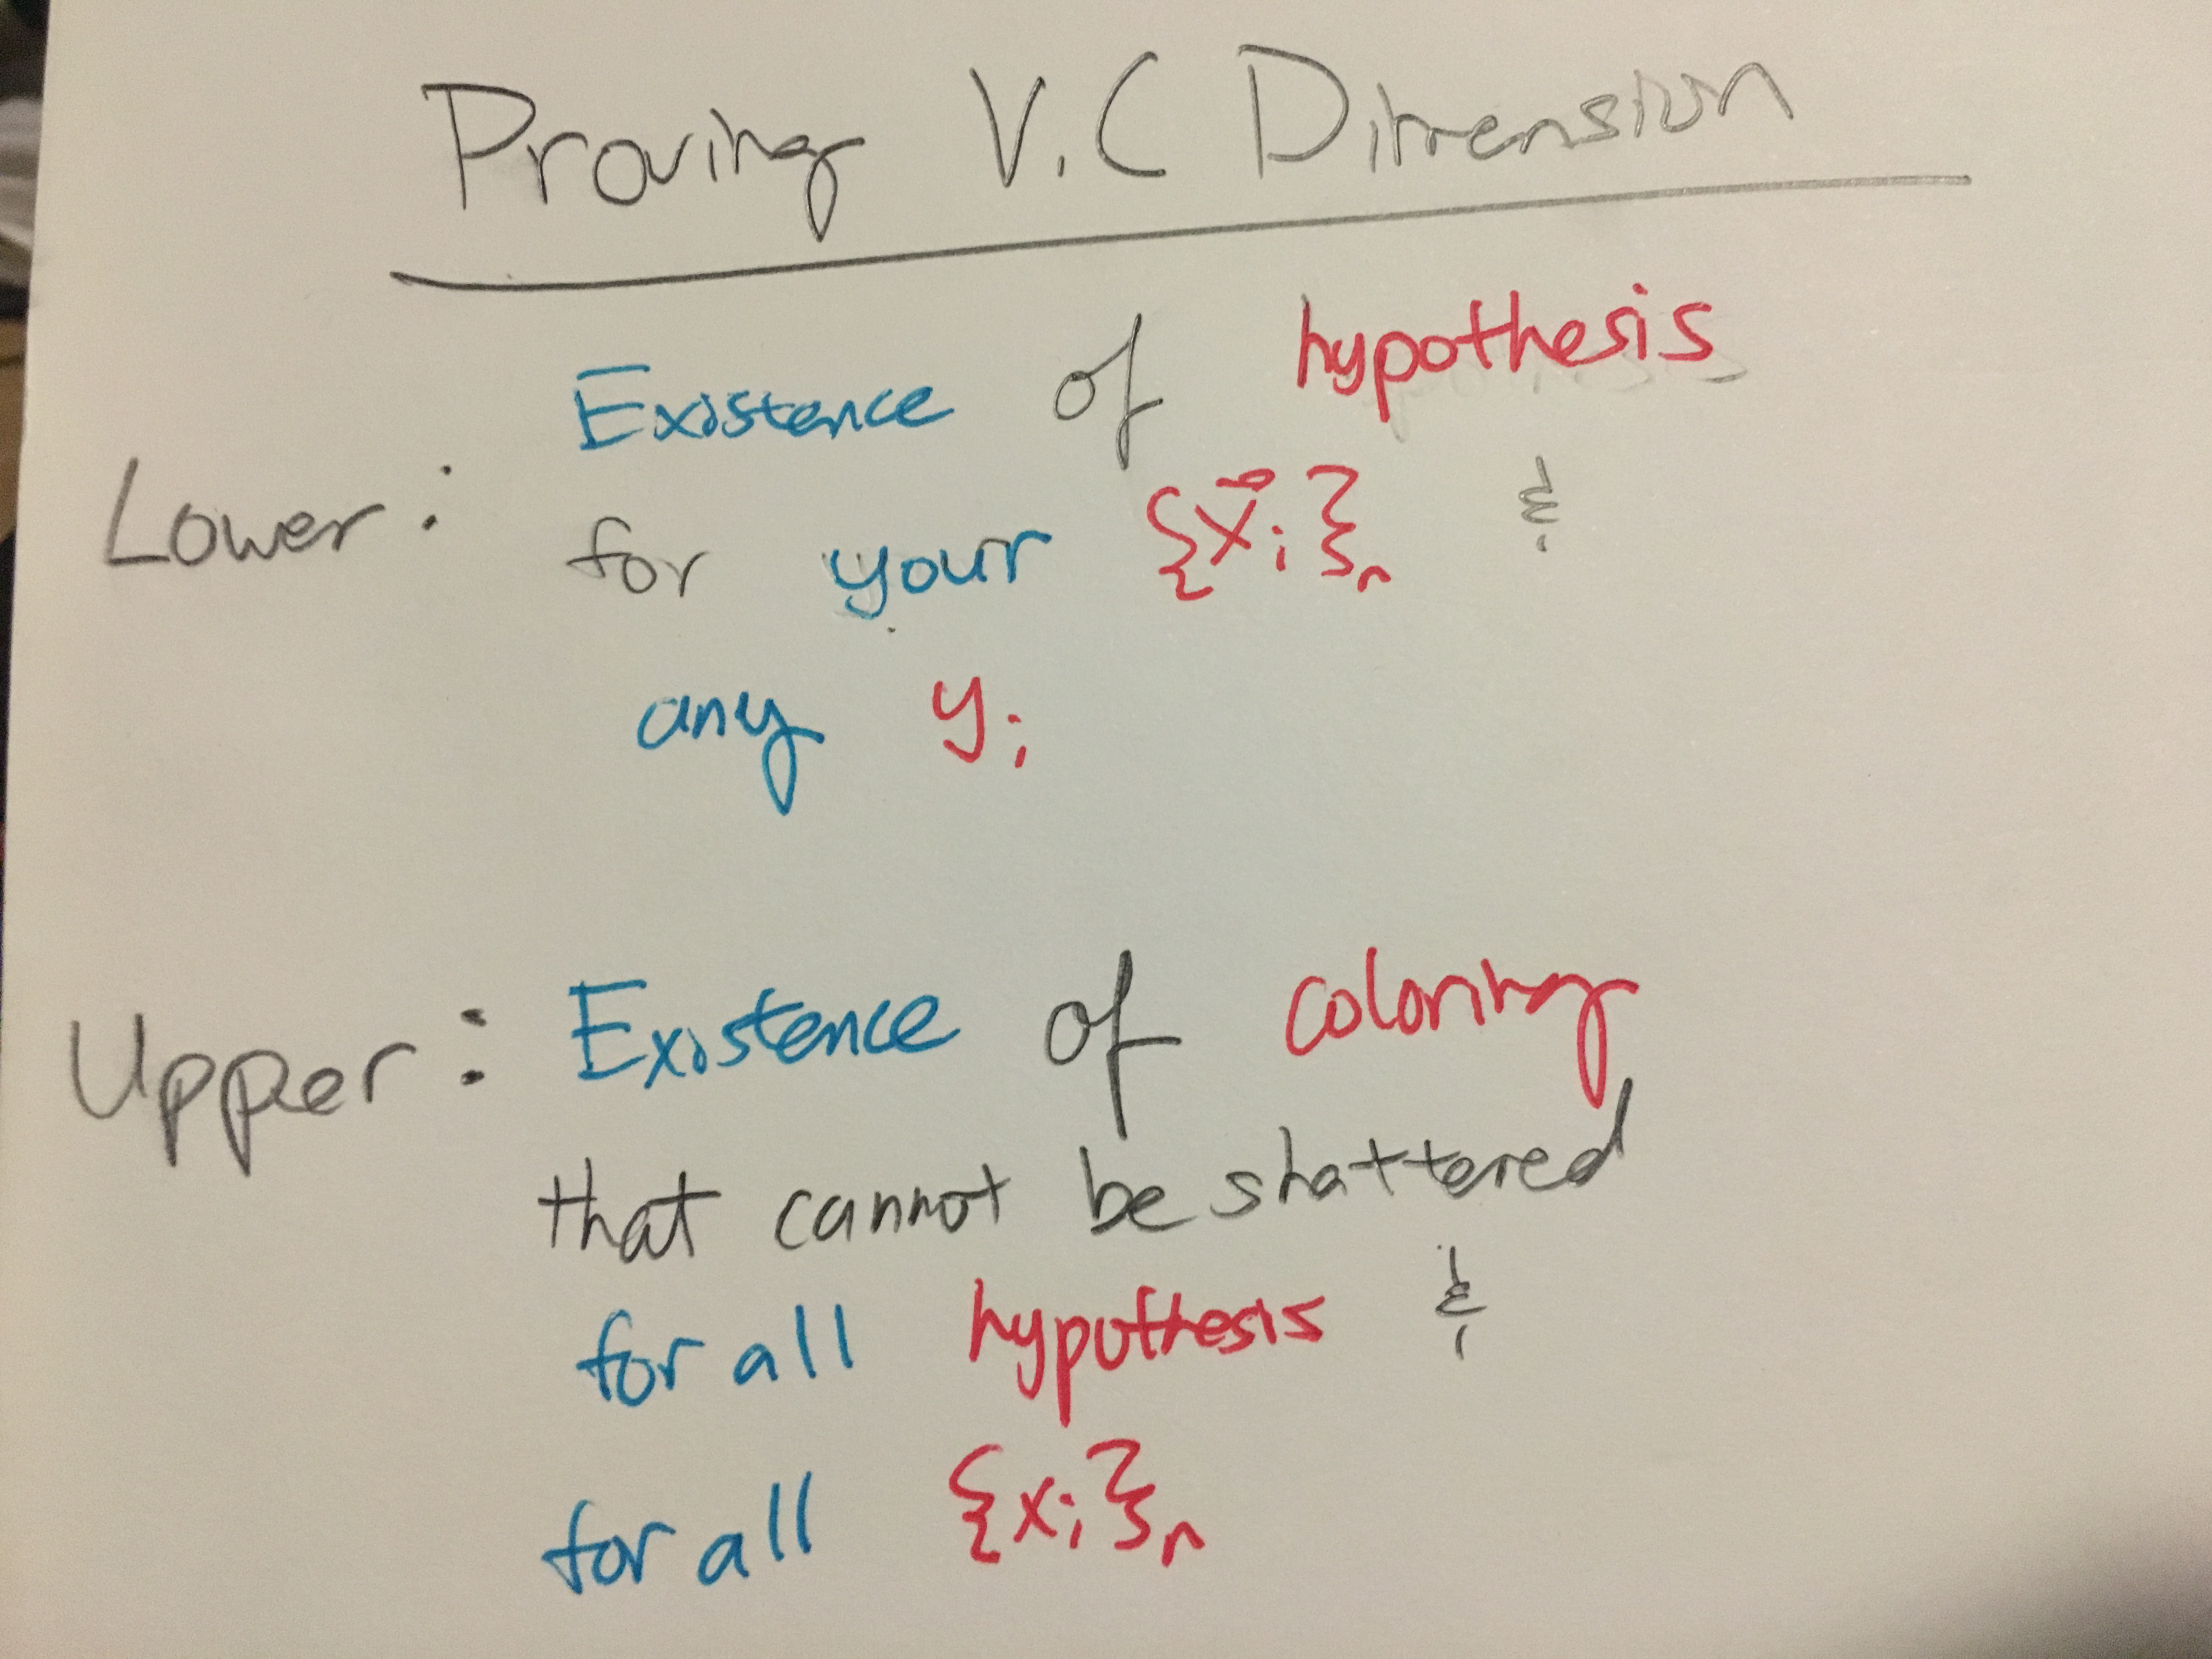 Proving V.C Dimension
Existence of hypothesis
Lower: for your {x⃗i}n &
any yi
Upper: Existence of coloring
that cannot be shattered
for all hypothesis &
for all {xi}n